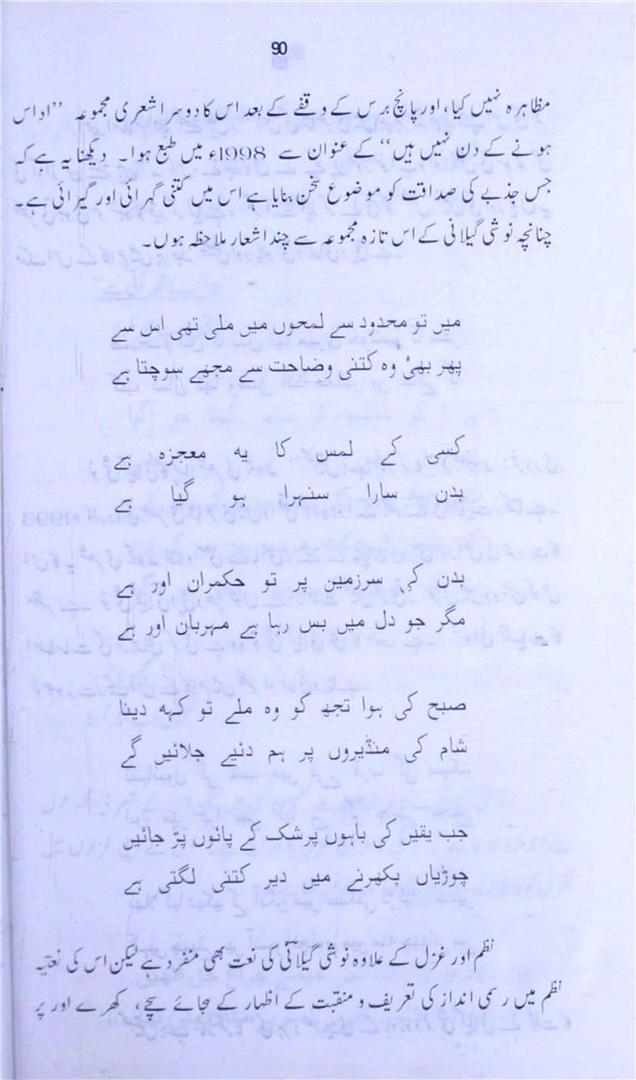 90
مظاہرہ نہیں کیا، اور پانچ برس کے وقفے کے بعد اس کا دوسرا شعری مجموعہ ”اداس
ہونے کے دن نہیں ہیں“ کے عنوان سے 1998ء میں طبع ہوا۔ دیکھنا یہ ہے کہ
جس جذبے کی صداقت کو موضوع سخن بنایا ہے اس میں کتنی گہرائی اور گیرائی ہے۔
چنانچہ نوشی گیلانی کے اس تازہ مجموعہ سے چند اشعار ملاحظہ ہوں۔
میں تو محدود سے لمحوں میں ملی تھی اس سے
پھر بھی وہ کتنی وضاحت سے مجھے سوچتا ہے
کسی کے لمس کا یہ معجزہ ہے
بدن سارا سنہرا ہو گیا ہے
بدن کی سرزمین پر تو حکمران اور ہے
مگر جو دل میں بس رہا ہے مہربان اور ہے
صبح کی ہوا تجھ کو وہ ملے تو کہہ دینا
شام کی منڈیروں پر ہم دئیے جلائیں گے
جب یقیں کی باہوں پر شک کے پائوں پڑ جائیں
چوڑیاں بکھرنے میں دیر کتنی لگتی ہے
نظم اور غزل کے علاوہ نوشی گیلانی کی نعت بھی منفرد ہے لیکن اس کی نعتیہ
نظم میں رسمی انداز کی تعریف و منقبت کے اظہار کے بجائے سچے، کھرے اور پر